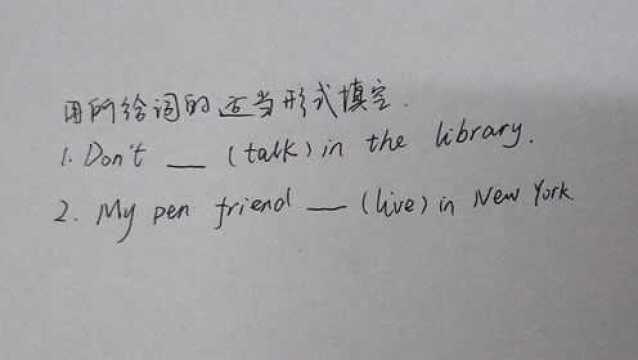 用所给词的适当形式填空.
1. Don't __ (talk) in the library.
2. My pen friend __ (live) in New York